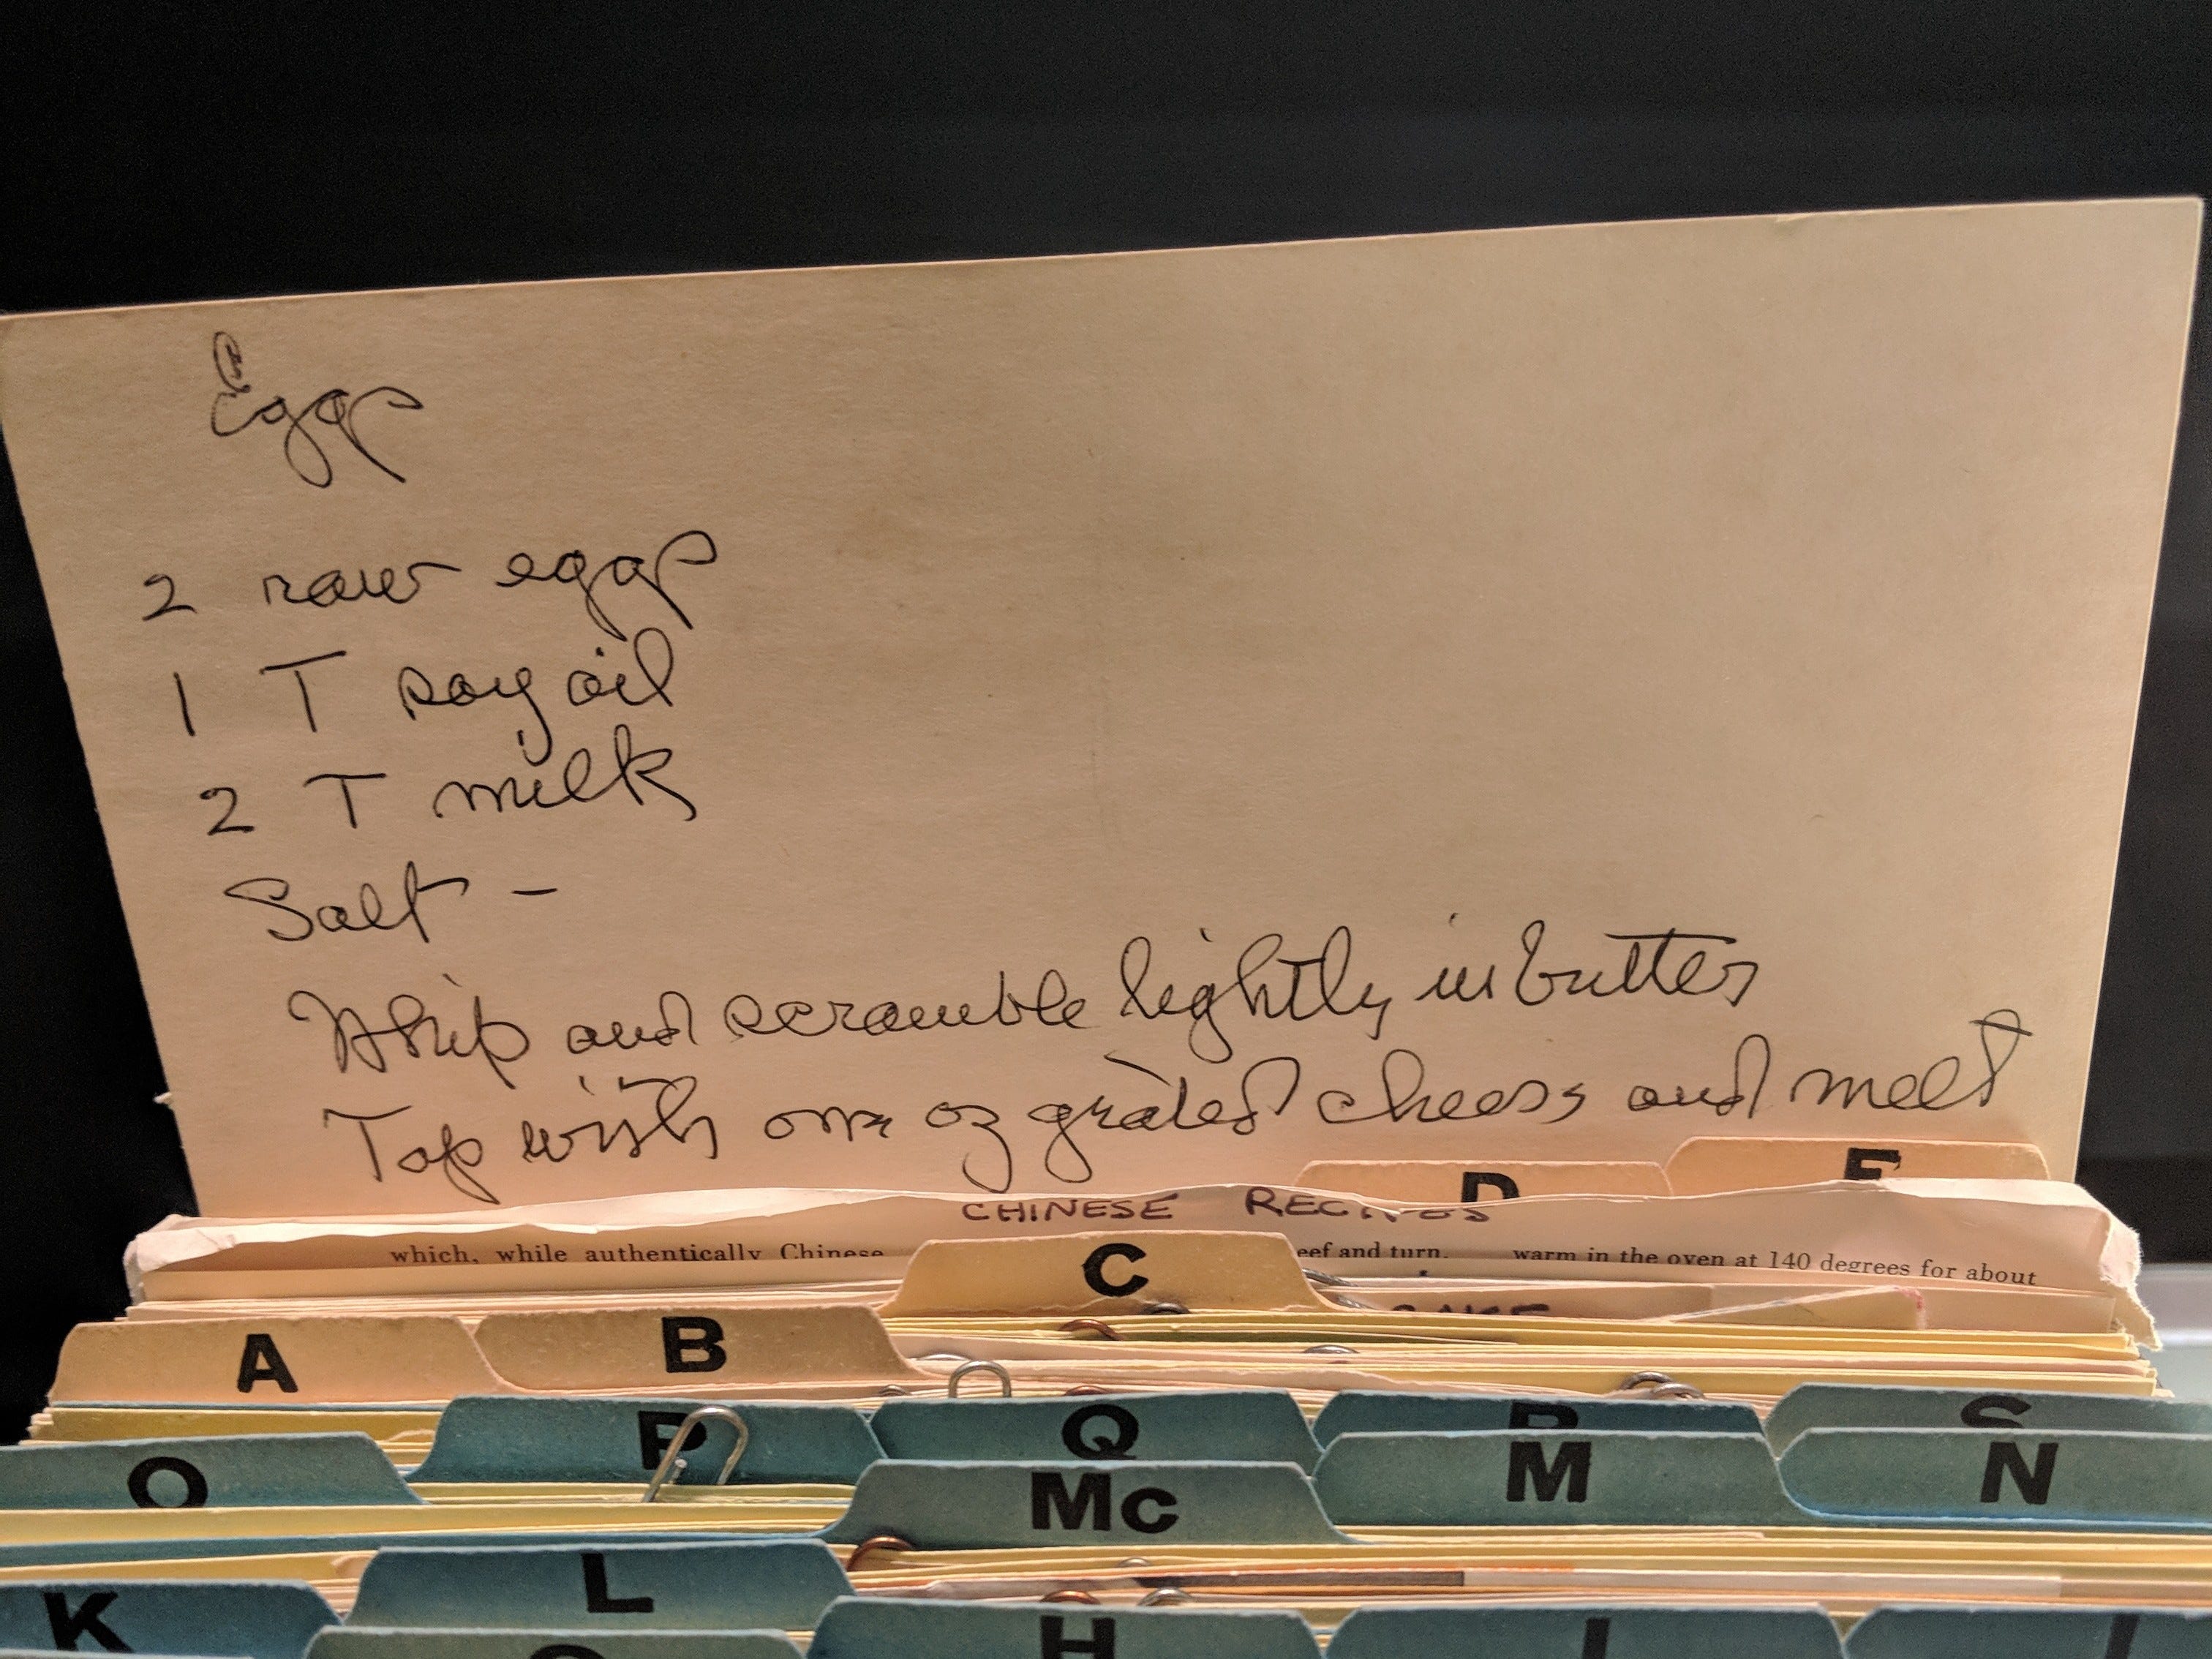 Eggs
2 raw eggs
1 T soy oil
2 T milk
Salt -
Whip and scramble lightly in butter
Top with one oz grated cheese and melt
D
E
CHINESE RECIPES
which, while authentically Chinese
eef and turn.
warm in the oven at 140 degrees for about
C
CAKE
A
B
P
Q
R
S
O
Mc
M
N
K
L
H